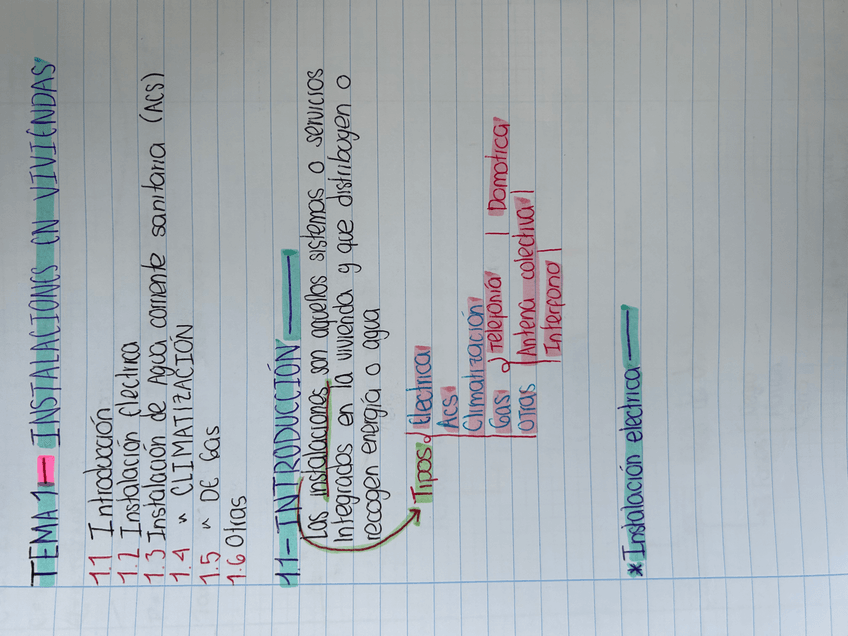 TEMA 1 — INSTALACIONES EN VIVIENDAS
1.1 Introducción
1.2 Instalación Electrica
1.3 Instalación de Agua corriente sanitaria (ACS)
1.4 " CLIMATIZACIÓN
1.5 " DE Gas
1.6 Otras
1.1 - INTRODUCCIÓN
Las instalaciones son aquellos sistemas o servicios
Integrados en la vivienda y que distribuyen o
recogen energía o agua
Tipos
Electrica
Acs
Climatización
Gas
Otras
Telefonía
Domotica
Antena colectiva
Interfono
* Instalación electrica